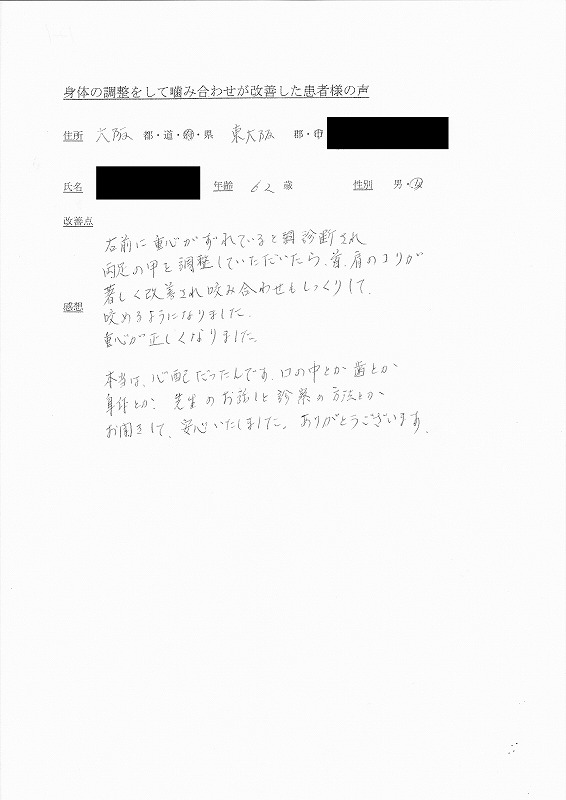 身体の調整をして噛み合わせが改善した患者様の声
住所 大阪 都・道・府・県 東大阪 郡・市
氏名 年齢 62 歳 性別 男・女
改善点
右前に重心がずれていると診断され
両足の甲を調整していただいたら、首、肩のコリが
著しく改善され咬み合わせもしっくりして、
感想
咬めるようになりました。
重心が正しくなりました。
本当は、心配だったんです、口の中とか歯とか
身体とか、先生のお話しと診察の方法とか
お聞きして、安心いたしました。ありがとうございます。